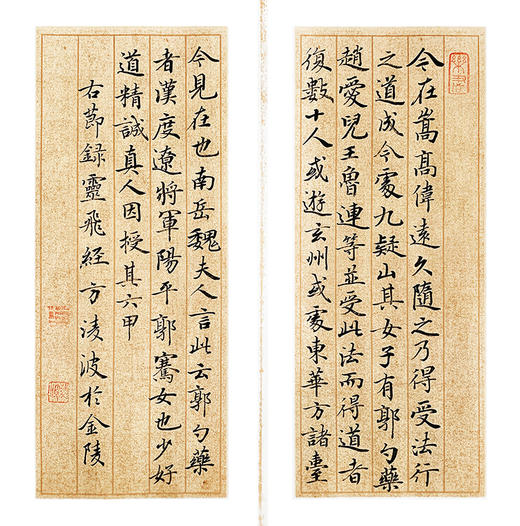 今在嵩高偉遠久隨之乃得受法行
之道成今處九疑山其女子有郭勺藥
趙愛兒王魯連等並受此法而得道者
復數十人或遊玄州或處東華方諸臺
今見在也南岳魏夫人言此云郭勺藥
者漢度遼將軍陽平郭騫女也少好
道精誠真人因授其六甲
右節錄靈飛經方淩波於金陵